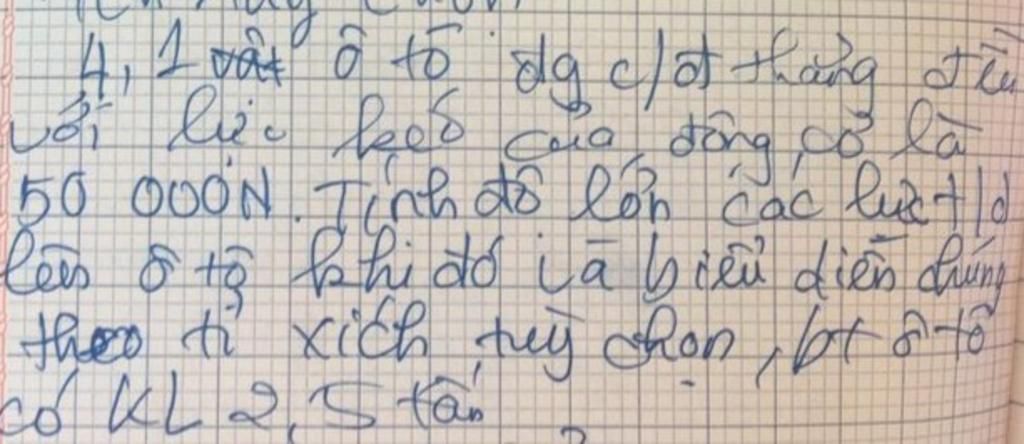 4, 1 vật ô tô đg c/đ thẳng đều
với lực kéo của động cơ là
50 000N. Tính độ lớn các lực t/d
lên ô tô khi đó và biểu diễn chúng
theo tỉ xích tuỳ chọn, bt ô tô
có KL 2,5 tấn